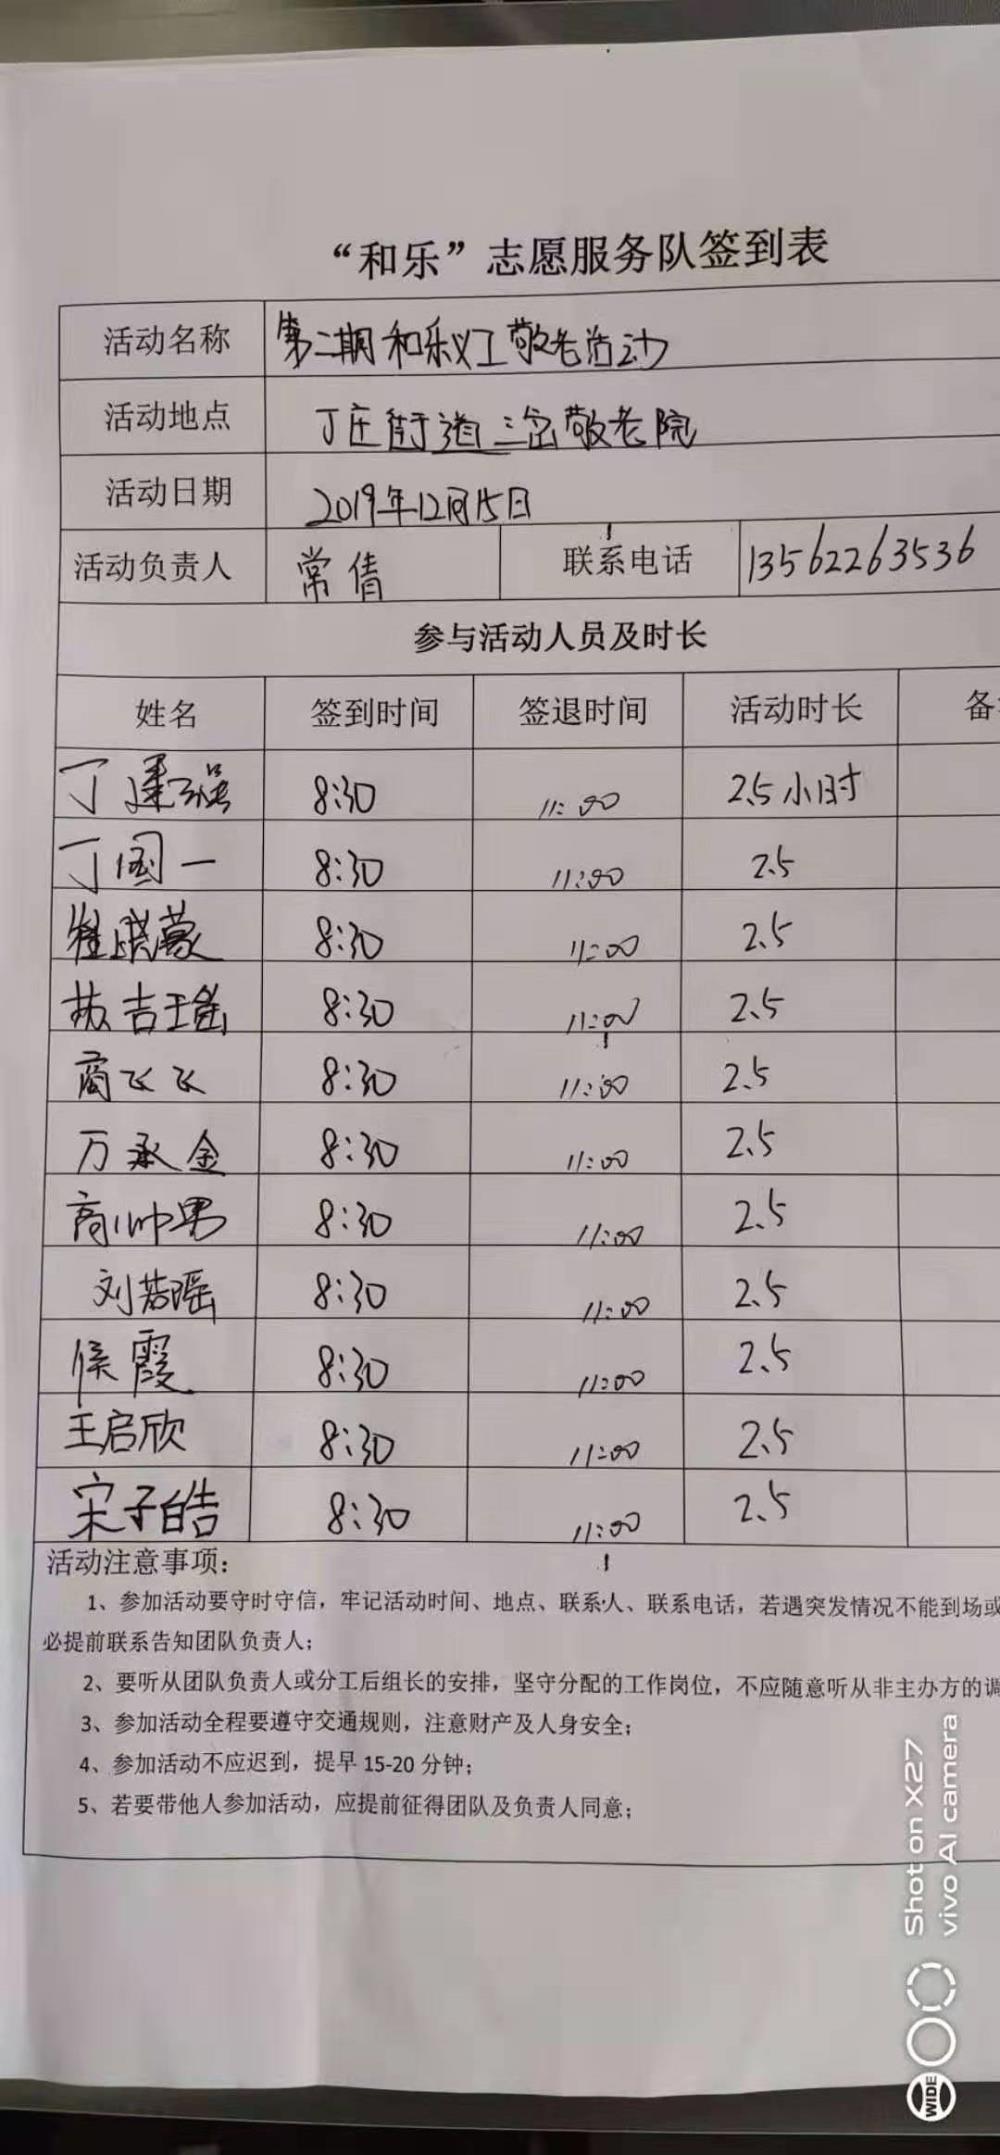 “和乐”志愿服务队签到表
活动名称 第二期和乐义工敬老活动
活动地点 丁庄街道三岔敬老院
活动日期 2019年12月15日
活动负责人 常倩 联系电话 13562263536
参与活动人员及时长
姓名 签到时间 签退时间 活动时长 备
丁 8:30 11:00 2.5小时
丁国一 8:30 11:00 2.5
崔晓蒙 8:30 11:00 2.5
吉瑶 8:30 11:00 2.5
商飞飞 8:30 11:00 2.5
万承金 8:30 11:00 2.5
商帅男 8:30 11:00 2.5
刘若瑶 8:30 11:00 2.5
侯霞 8:30 11:00 2.5
王启欣 8:30 11:00 2.5
宋子皓 8:30 11:00 2.5
活动注意事项：
1、参加活动要守时守信，牢记活动时间、地点、联系人、联系电话，若遇突发情况不能到场或
必提前联系告知团队负责人；
2、要听从团队负责人或分工后组长的安排，坚守分配的工作岗位，不应随意听从非主办方的调
3、参加活动全程要遵守交通规则，注意财产及人身安全；
4、参加活动不应迟到，提早 15-20 分钟；
5、若要带他人参加活动，应提前征得团队及负责人同意；
Shot on X27
vivo AI camera
WIDE